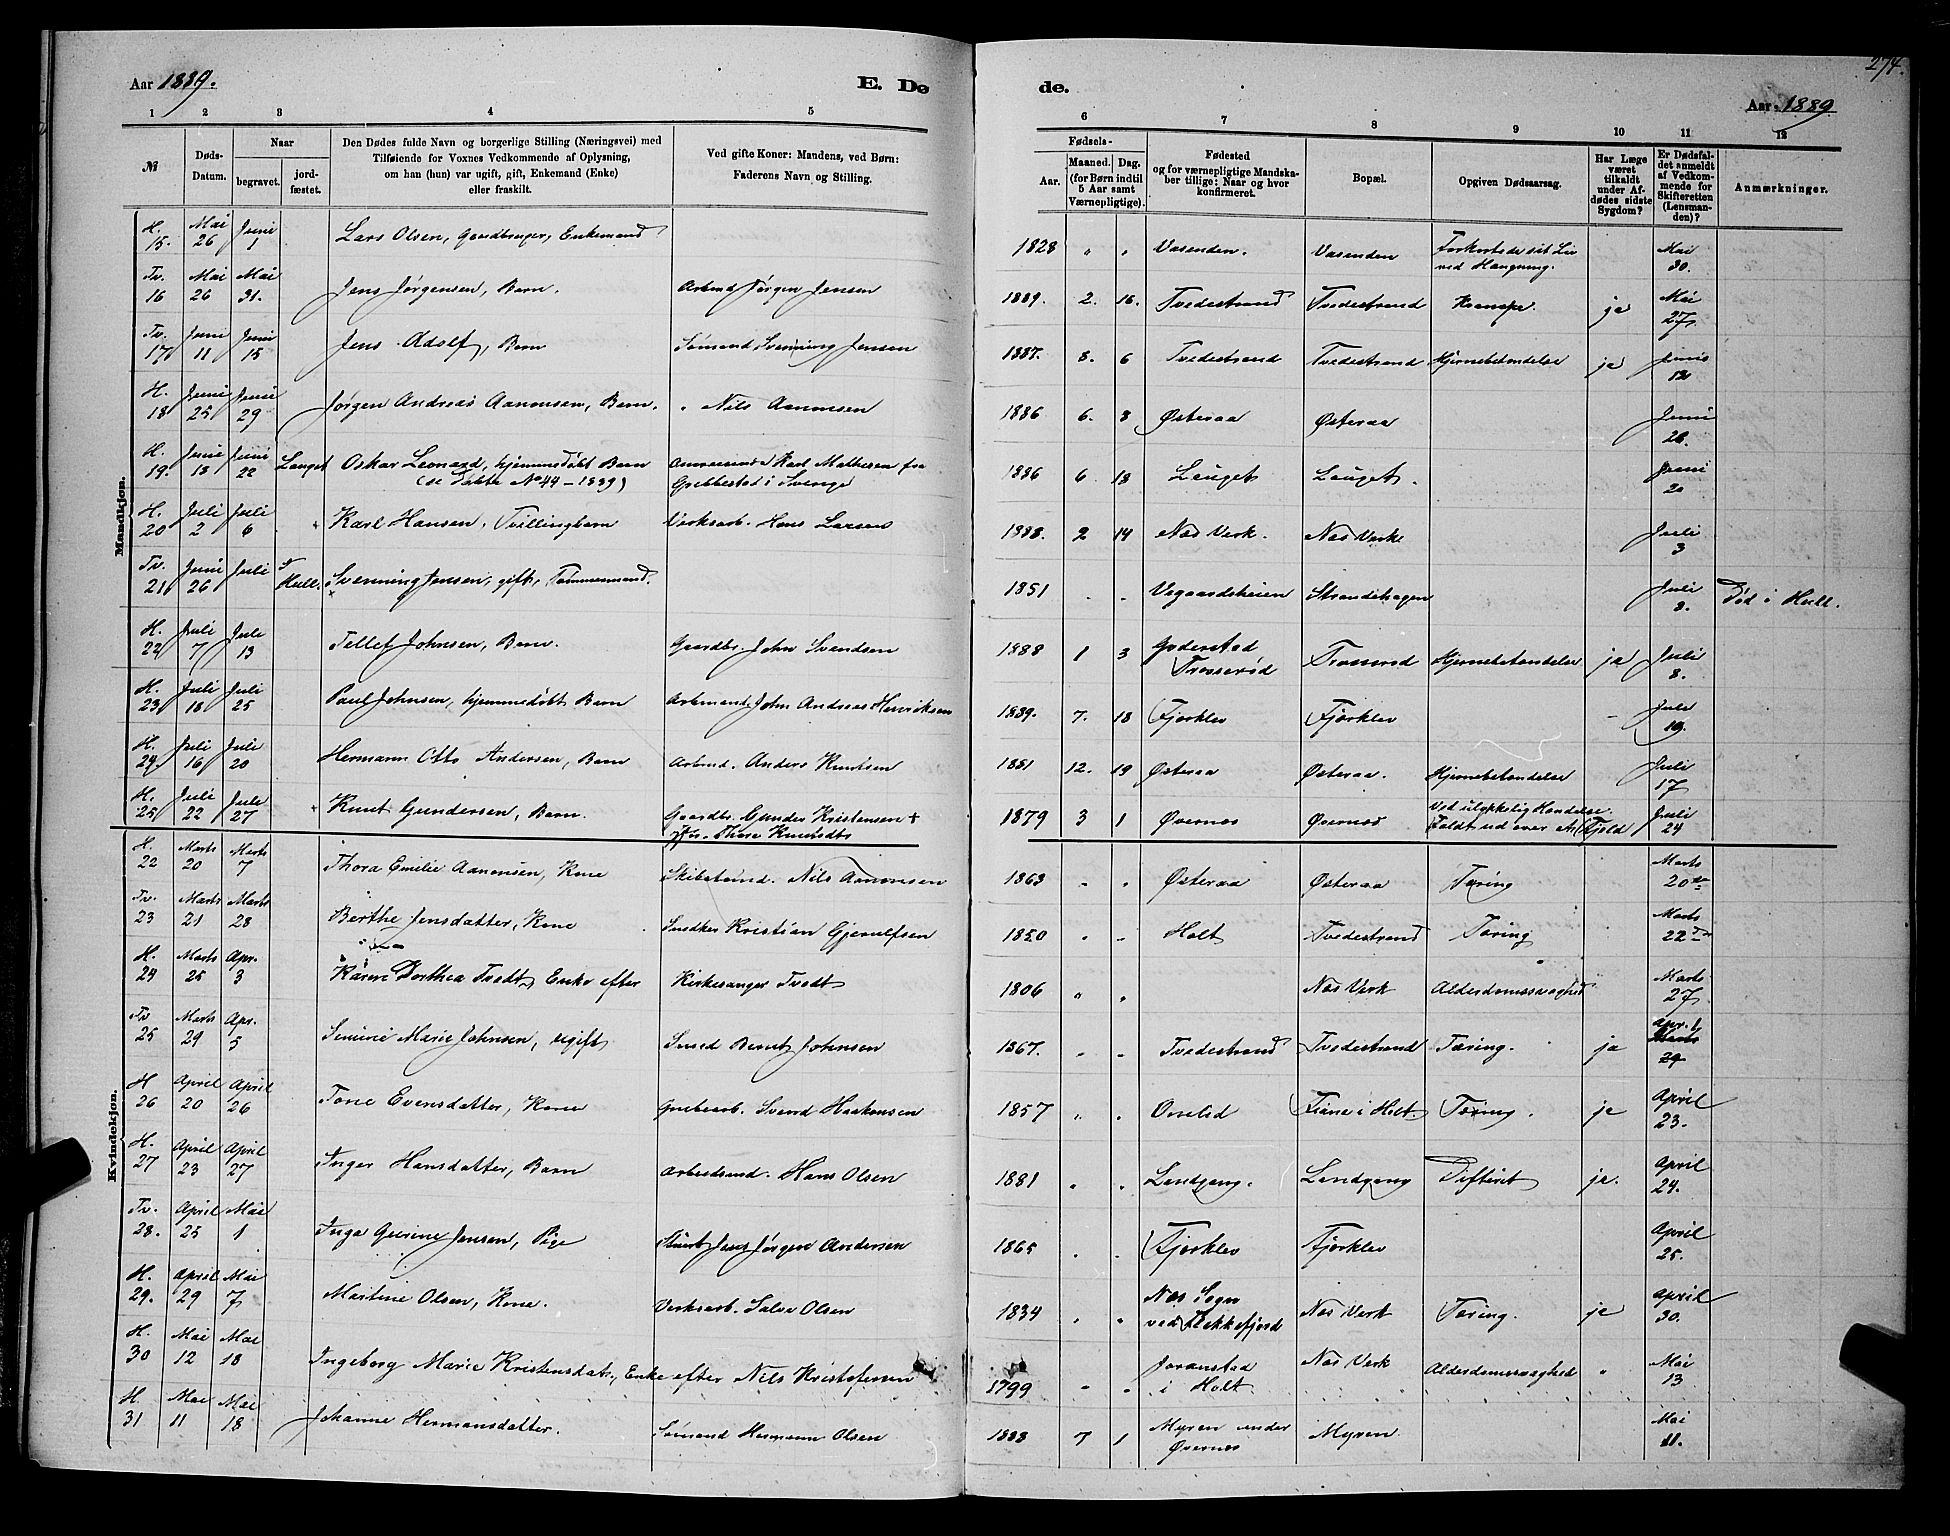 Aar 1889. E. Dø
1 2 3 4 5
№
Døds-
Datum.
Naar
begravet.
jord-
fæstet.
Den Dødes fulde Navn og borgerlige Stilling (Næringsvei) med
Tilføiende for Voxnes Vedkommende af Oplysning,
om han (hun) var ugift, gift, Enkemand (Enke)
eller fraskilt.
Ved gifte Koner: Mandens, ved Børn:
Faderens Navn og Stilling.
Mandkjøn.
H. 15. Mai 26 Juni 1 Lars Olsen, Gaardbruger, Enkemand
Tv. 16 Mai 26 Mai 31. Jens Jørgensen, Barn. Arbmd Jørgen Jensen
Tv. 17 Juni 11 Juni 15 Jens Adolf, Barn Sømand Svenning Jensen
H. 18 Juni 25 Juni 29 Jørgen Andreas Aanonsen, Barn. " Nils Aanonsen
H. 19. Juni 18 Juni 22 Lauget Oskar Leonard, hjemmedøbt Barn Karl Mathisen fra
(se Døbte No 44 - 1889) Grebbestad i Sverige
H. 20 Juli 2 Juli 6 Karl Hansen, Tvillingbarn Verksarb. Hans Larsen
Tv. 21 Juni 26 Juli Hull. Svenning Jensen, gift, Tømmermand.
H. 22 Juli 7 Juli 13 Tellef Johnsen, Barn. Gaardbr. John Svendsen
H. 23 Juli 18 Juli 25 Paul Johnsen, hjemmedøbt Barn Arbmand. John Andreas Henriksen
H. 24. Juli 16 Juli 20 Hermann Otto Andersen, Barn Arbmd. Anders Knutsen
H. 25 Juli 22 Juli 27 + Knut Gundersen, Barn. Gaardbr. Gunder Kristensen +
Thore Knutsdtr
Kvindekjøn.
H. 22 Marts 20 Marts 7 Thora Emilie Aanonsen, Kone Skibstmd. Nils Aanonsen
Tv. 23 Marts 21 Marts 28 Berthe Jensdatter, Kone Snedker Kristian Gjerulfsen
H. 24 Marts 25 Apr. 3 Karen Dorthea Tvedt, Enke efter Kirkesanger Tvedt
Tv. 25 Marts 29 Apr. 5 Sinurie Marie Johnsen, ugift Smed Bernt Johnsen
H. 26 April 20 April 26 Tone Evensdatter, Kone Grubearb. Svend Haakensen
H. 27 April 23 April 27 Inger Hansdatter, Barn Arbeidsmd. Hans Olsen
Tv. 28. April 25 Mai 1 Inga Gurine Jensen, Pige Jens Jørgen Andersen
H. 29. April 29 Mai 7 Martine Olsen, Kone. Verksarb. Salve Olsen
H. 30 Mai 12 Mai 18 Ingeborg Marie Kristensdatr., Enke efter Nils Kristofersen
H. 31 Mai 11 Mai 18 Johanne Hermansdatter. Sømand Hermann Olsen
274.
de. Aar 1889
6 7 8 9 10 11 12
Fødsels-
Aar.
Maaned. Dag.
(for Børn indtil
5 Aar samt
Værnepligtige).
Fødested
og for værnepligtige Mandska-
ber tillige: Naar og hvor
konfirmeret.
Bopæl.
Opgiven Dødsaarsag.
Har Læge
været
tilkaldt
under Af-
dødes sidste
Sygdom?
Er Dødsfal-
det anmeldt
af Vedkom-
mende for
Skifteretten
(Lensman-
den)?
Anmærkninger.
1828 " " Vasenden. Vasenden Forkortede sit Liv
ved Hængning. Mai 30.
1889. 2. 16. Tvedestrand Tvedestrand Krampe. ja Mai 27.
1887. 8. 6 Tvedestrand Tvedestrand Hjernebetændelse ja Juni 12
1886 6. 8 Østeraa Østeraa Juni 26.
1886 6 18 Lauget Lauget. Juni 20
1888. 2 14 Næs Verk. Næs Verk Juli 3
1851 " " Vegaardsheien Strandehagen Juli 8. Død i Hull.
1888 1 3 Goderstad
Trosserød Trosserød Hjernebetændelse ja Juli 8.
1889. 7. 18 Fjærklev Fjærklev Juli 19.
1881 12. 19 Østeraa Østeraa. Hjernebetændelse Juli 17
1879 3 1 Øvernes Øvernes Ved ulykkelig Hændelse.
Faldt ud over et Fjeld Juli 24
1863 " " Østeraa Østeraa Tæring Marts 20de
1850 " " Holt Tvedestrand Tæring Marts 22de
1806 " " Næs Verk Alderdomssvaghed Marts 27
1867. " " Tvedestrand Tvedestrand Tæring. ja Apr. 1 Marts 29.
1857 " " Omlid Fiane i Holt. Tæring. ja April 23.
1881 " " Landgang. Landgang Difterit ja. April 24.
1865 " " Fjærklev Fjærklev April 25.
1834 " " Næs Sogn
ved Flekkefjord Næs Verk Tæring. ja April 30.
1799 " " Joranstad
i Holt. Næs Verk Alderdomssvaghed " Mai 13
1888 7 1 Myren under
Øvernes Myren. Mai 11.